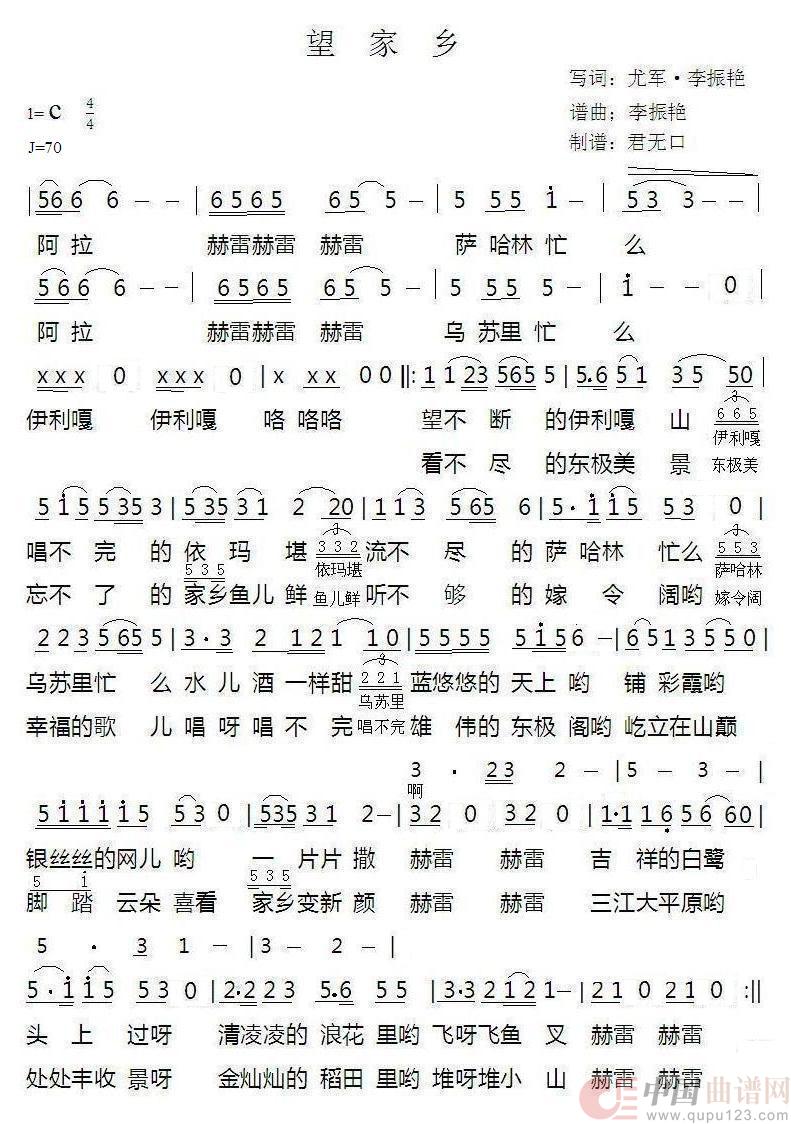 望 家 乡
写词：尤军·李振艳
1= C 4/4
谱曲；李振艳
J=70
制谱：君无口
|566 6 — — |6565 65 5 — |5 55 i — |53 3 — — |
阿 拉 赫雷赫雷 赫雷 萨 哈林 忙 么
566 6 — — |6565 65 5 — |5 55 5 — |i — — 0 |
阿 拉 赫雷赫雷 赫雷 乌 苏里 忙 么
xxx 0 xxx 0 |x xxx 00 ‖: 11235655 |5.651 35 50|
伊利嘎 伊利嘎 咯 咯咯 望不 断 的伊利嘎 山 665 伊利嘎
看不 尽 的东极美 景 东极美
5i55353 |53531 2 20 |113 565 6 |5· ii5 53 0 |
唱不 完 的 依 玛 堪 332 流不 尽 的 萨 哈林 忙么 553
依玛堪 萨哈林
535
忘不 了 的 家乡鱼儿 鲜 鱼儿鲜 听不 够 的 嫁 令 阔哟 嫁令阔
2235655 |3·3 2 121 10 |5555 5i56 |6513553 |
乌苏里忙 么 水 儿 酒 一样甜 221 蓝悠悠的 天上 哟 铺 彩霞哟
乌苏里
幸福的歌 儿 唱 呀 唱 不 完 唱不完 雄 伟的 东极 阁哟 屹立在山巅
3 · 23 2 — |5 — 3 — |
啊
5iiii5 530 |53531 2— |320 320 |1·11656 60|
银丝丝的网儿 哟 一 片片 撒 赫雷 赫雷 吉 祥的白鹭
5 i 535
脚 踏 云朵 喜看 家乡变新 颜 赫雷 赫雷 三江大平原哟
5 · 31 — |3 — 2 — |
5·ii5 530 |2·223 5.6 55 |3·23 2121 |210 210 :‖
头 上 过呀 清凌凌的 浪花 里哟 飞呀飞鱼 叉 赫雷 赫雷
处处丰收 景呀 金灿灿的 稻田 里哟 堆呀堆小 山 赫雷 赫雷
中国曲谱网
www.qupu123.com